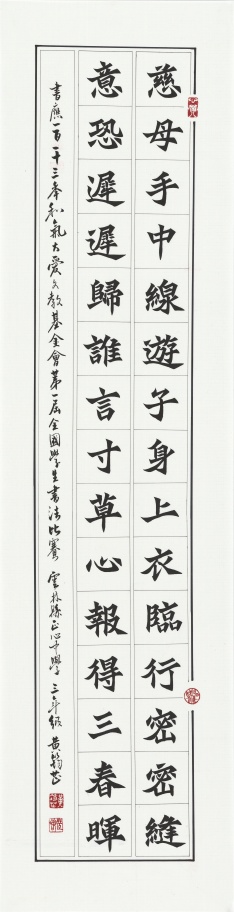 慈母手中線遊子身上衣臨行密密縫
意恐遲遲歸誰言寸草心報得三春暉
書應一百一十三年和氣大愛文教基金會第一屆全國學生書法比賽 雲林縣正心中學 三年級 黃